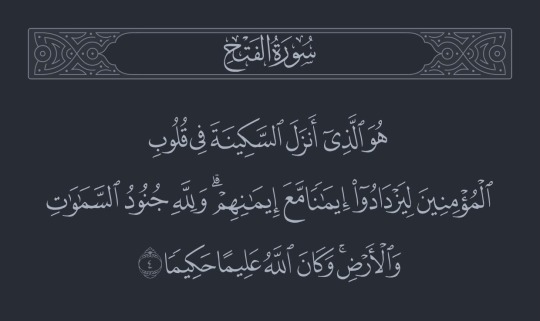 سُورَةُ الفَتْحِ
هُوَ ٱلَّذِىٓ أَنزَلَ ٱلسَّكِينَةَ فِى قُلُوبِ
ٱلْمُؤْمِنِينَ لِيَزْدَادُوٓا۟ إِيمَـٰنًا مَّعَ إِيمَـٰنِهِمْ ۗ وَلِلَّهِ جُنُودُ ٱلسَّمَـٰوَٰتِ
وَٱلْأَرْضِ ۚ وَكَانَ ٱللَّهُ عَلِيمًا حَكِيمًا ٤